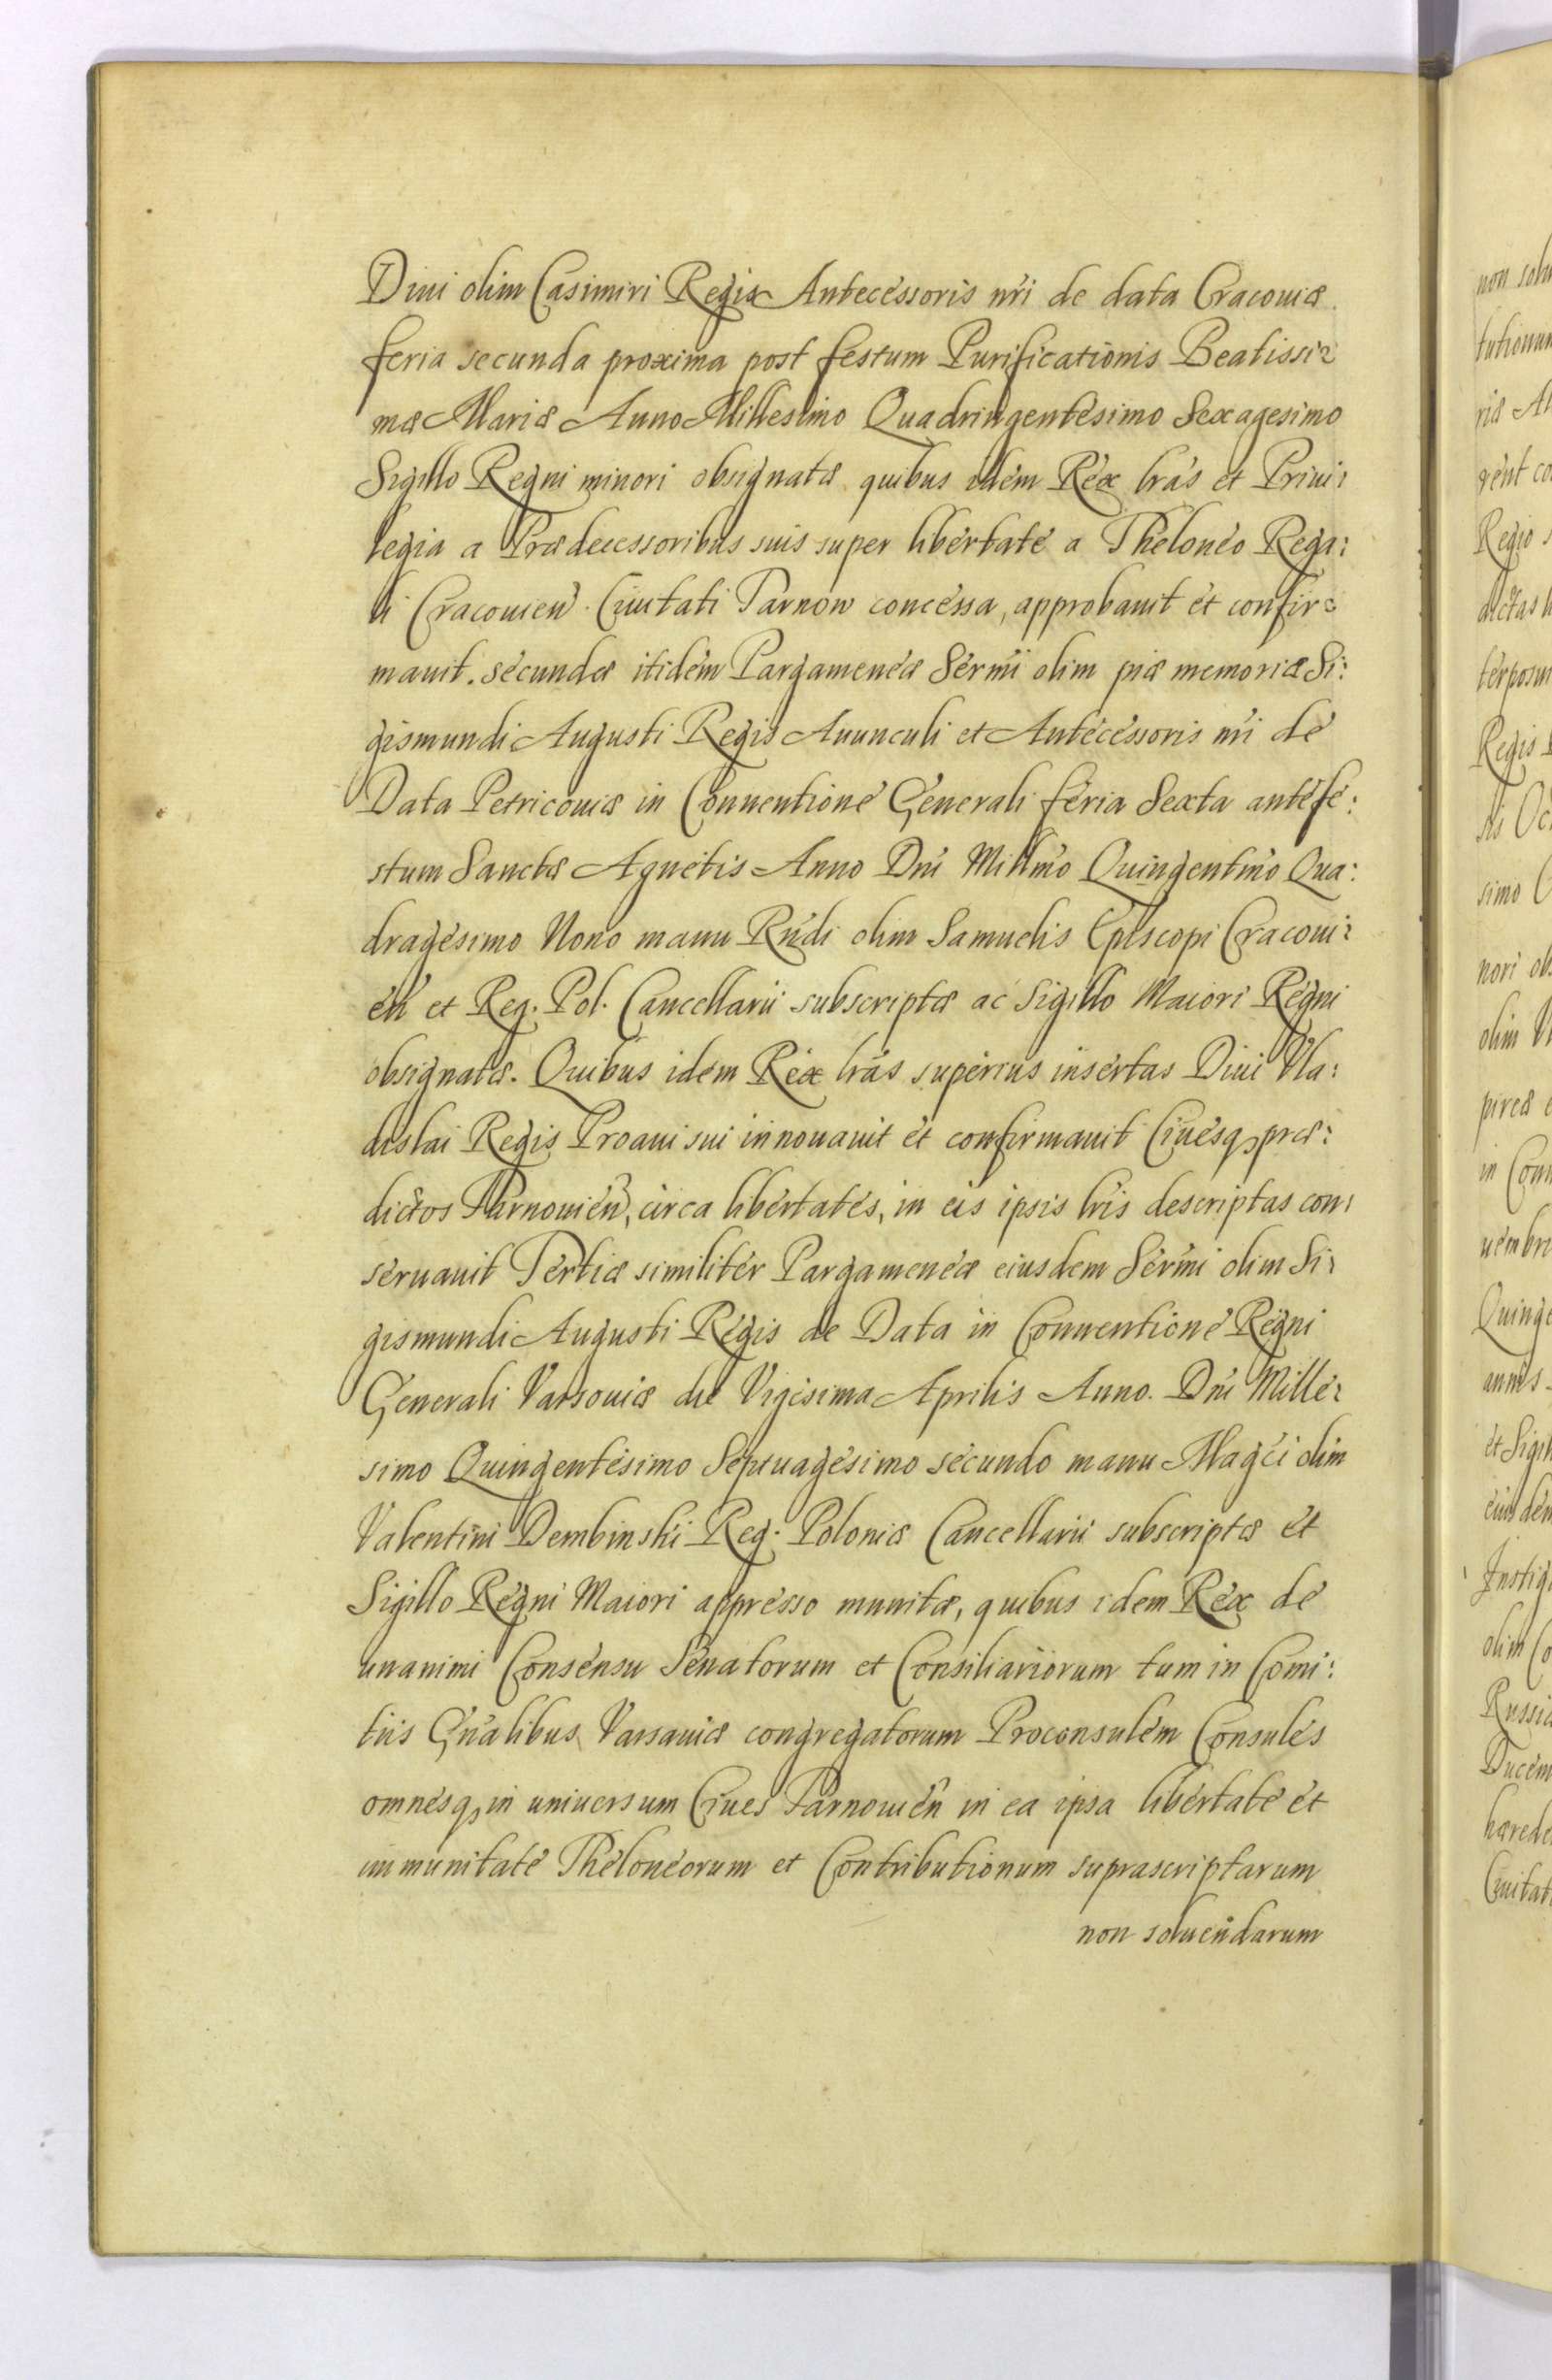 Diui olim Casimiri Regis Antecessoris nri de data Cracouiæ
feria secunda proxima post festum Purificationis Beatissi:
mæ Mariæ Anno Millesimo Quadringentesimo Sexagesimo
Sigillo Regni minori obsignatæ quibus idem Rex lras et Priui:
legia a Prædecessoribus suis super libertate a Theloneo Rega:
li Cracouien Ciuitati Tarnow concessa, approbauit et confir:
mauit. secundæ itidem Pargameneæ Sermi olim piæ memoriæ Si:
gismundi Augusti Regis Auunculi et Antecessoris nri de
Data Petricouiæ in Conuentione Generali feria Sexta ante fe:
stum Sanctæ Agnetis Anno Dni Millmo Quingentmo Qua:
dragesimo Nono manu Rndi olim Samuelis Episcopi Cracoui:
en et Reg. Pol. Cancellarii subscriptæ ac Sigillo Maiori Regni
obsignatæ. Quibus idem Rex lras superius insertas Diui Vla:
dislai Regis Proaui sui innouauit et confirmauit Ciuesq præ:
dictos Tarnouien, circa libertates, in eis ipsis lris descriptas con:
seruauit Tertiæ similiter Pargameneæ eiusdem Sermi olim Si:
gismundi Augusti Regis de Data in Conuentione Regni
Generali Varsouiæ die Vigesima Aprilis Anno. Dni Mille:
simo Quingentesimo Septuagesimo secundo manu Magci olim
Valentini Dembinski Reg. Poloniæ Cancellarii subscriptæ et
Sigillo Regni Maiori appresso munitæ, quibus idem Rex de
unanimi Consensu Senatorum et Consiliariorum tum in Comi:
tiis Gnalibus Varsauiæ congregatorum Proconsulem Consules
omnesq in uniuersum Ciues Tarnouien in ea ipsa libertate et
immunitate Theloneorum et Contributionum suprascriptarum
non soluendarum